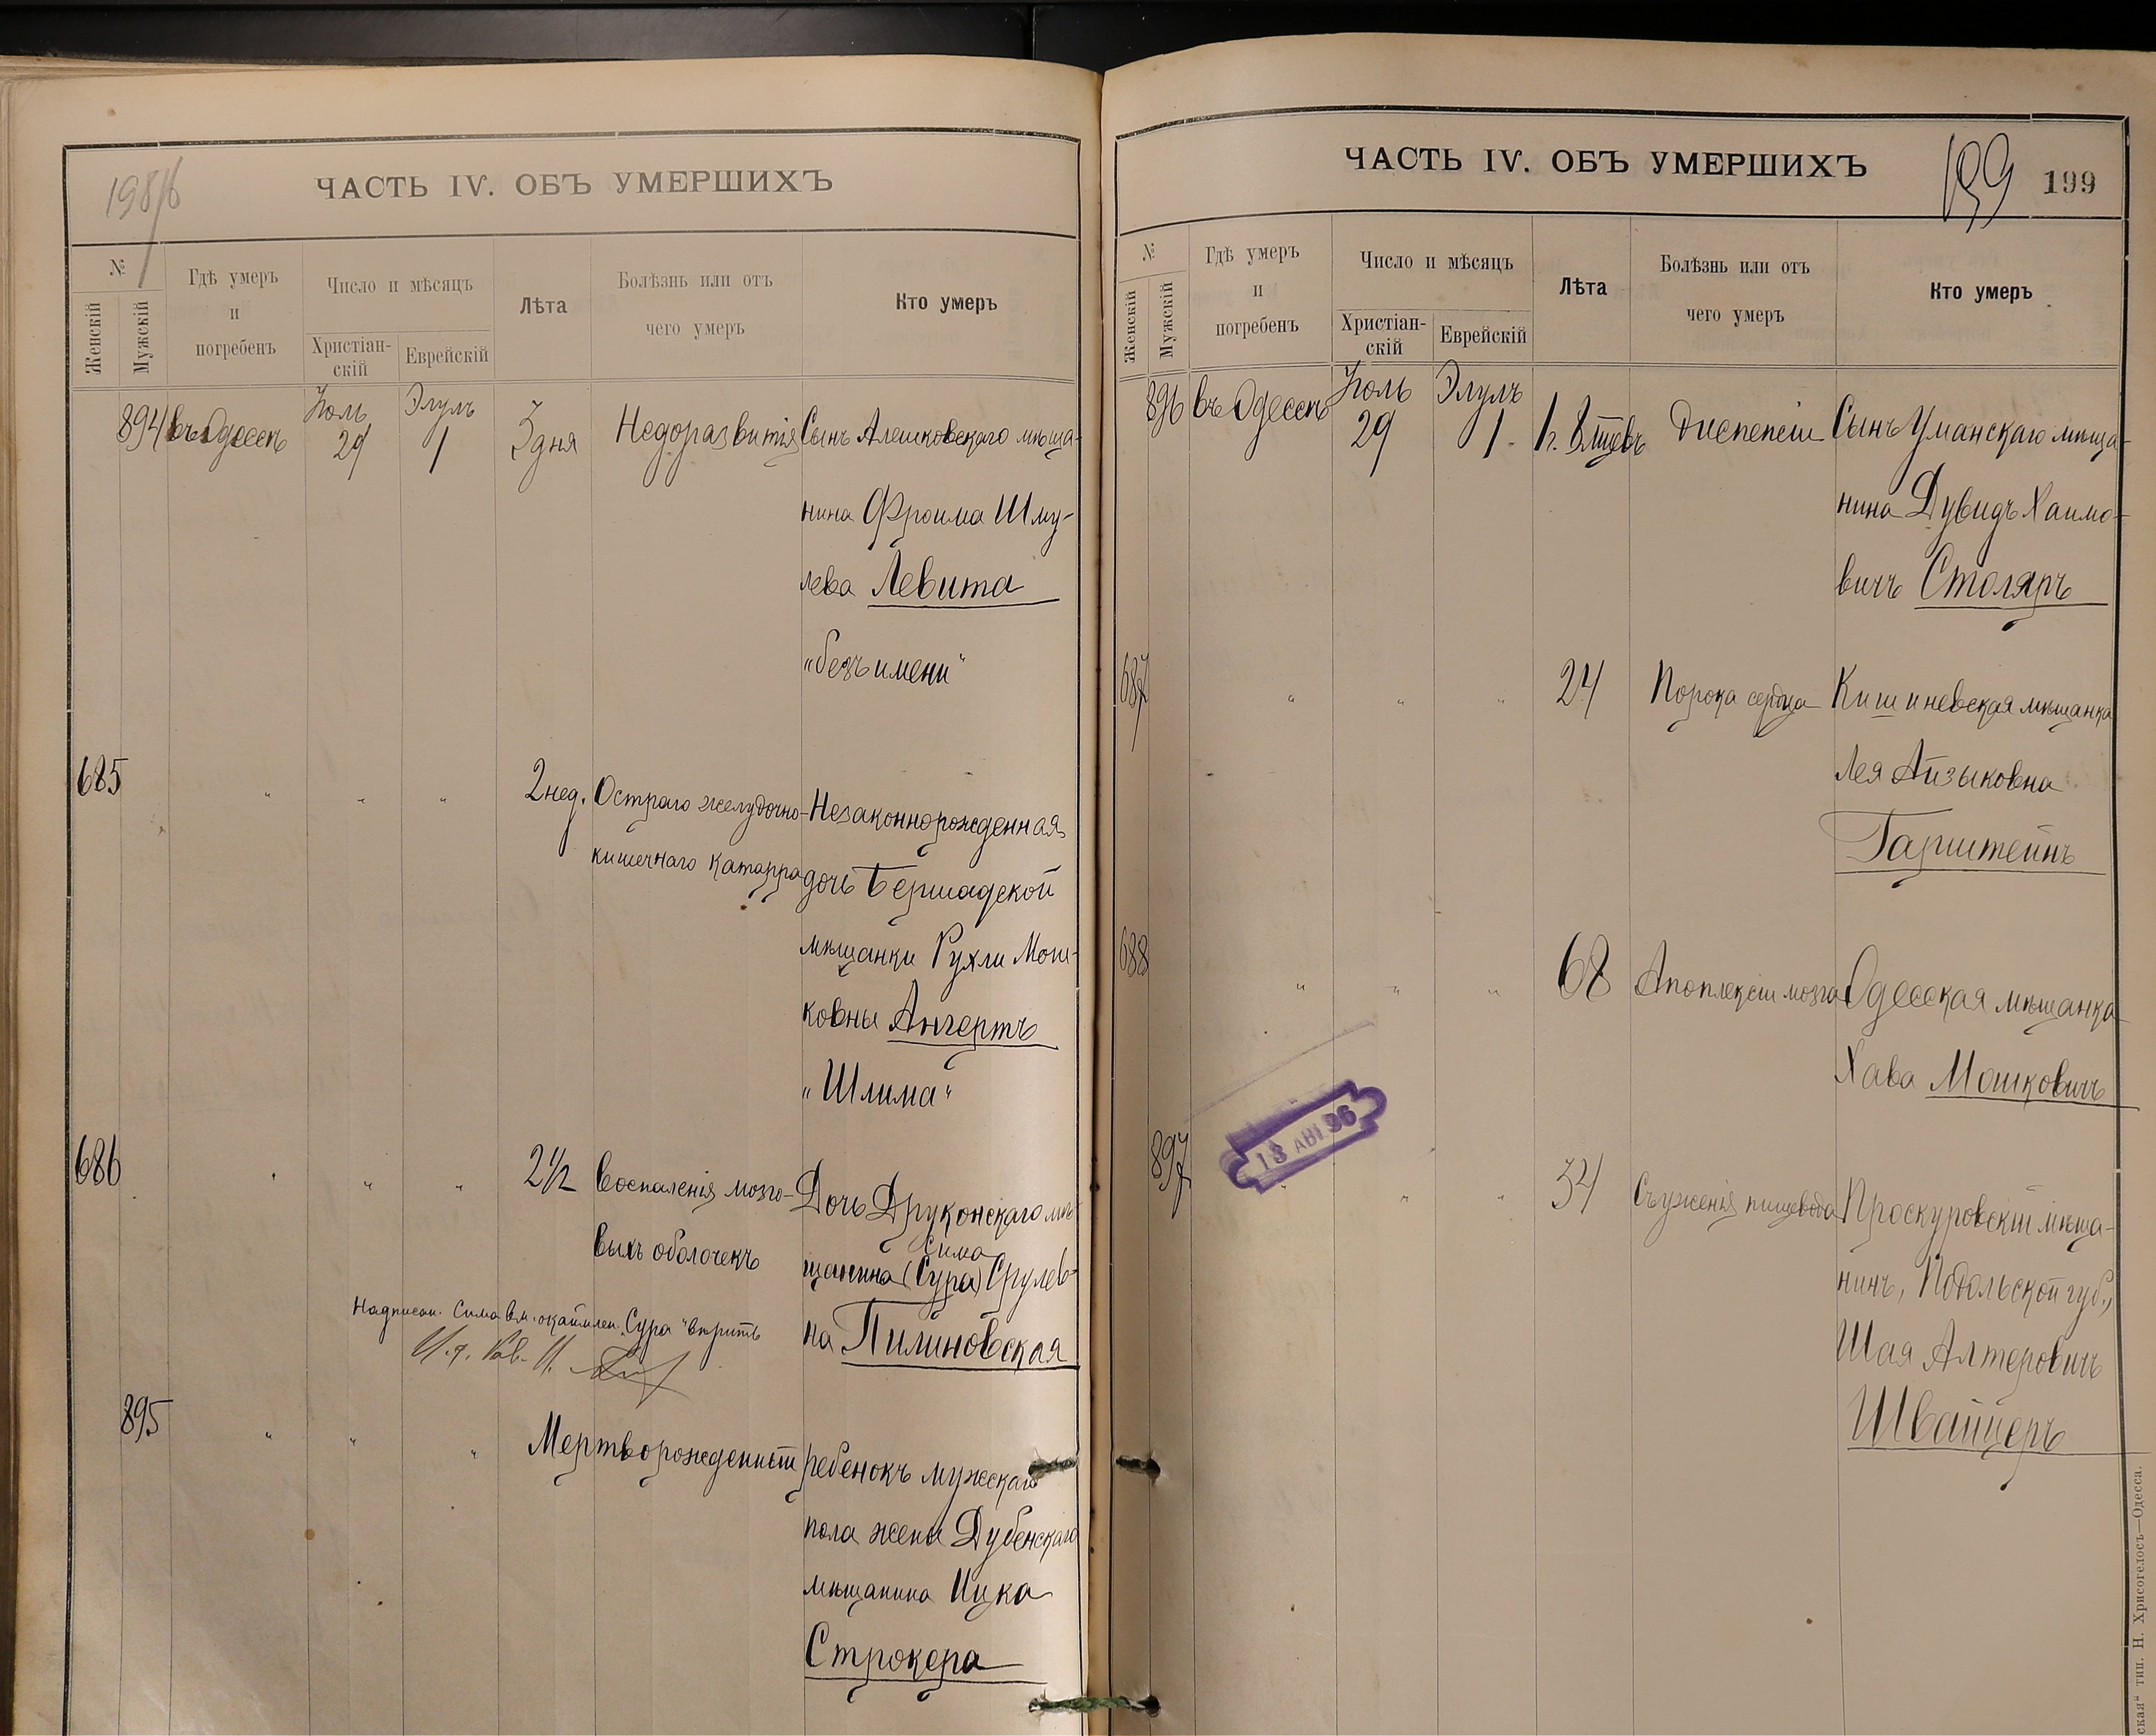 198/б
ЧАСТЬ IV. ОБЪ УМЕРШИХЪ
№
Женскій
Мужскій
Гдѣ умеръ
и
погребенъ
Число и мѣсяцъ
Христіан-
скій
Еврейскій
Лѣта
Болѣзнь или отъ
чего умеръ
Кто умеръ
Іюль Элулъ
894 въ Одессѣ 29 1 3 дня Недоразвитія Сынъ Алешковскаго мѣща-
нина Фроима Шму-
лева Левита
„безъ имени“
685 " " " 2 нед. Остраго желудочно- Незаконнорожденная
кишечнаго катарра дочь Бершадской
мѣщанки Рухли Мош-
ковны Ангертъ
„Шлима“
686 " " " 2 1/2 Воспаленія мозго- Дочь Друконскаго мѣ-
выхъ оболочекъ
Сима
щанина (Сура) Срулев-
на Пилиновская
Надписан. Сима вм. окаймлен. „Сура“ вѣрить
И. д. Рав.
895 " " " Мертворожденный ребенокъ мужскаго
пола жены Дубенскаго
мѣщанина Ицка
Строкера
ЧАСТЬ IV. ОБЪ УМЕРШИХЪ
199
199
№
Женскій
Мужскій
Гдѣ умеръ
и
погребенъ
Число и мѣсяцъ
Христіан-
скій
Еврейскій
Лѣта
Болѣзнь или отъ
чего умеръ
Кто умеръ
Іюль Элулъ
896 въ Одессѣ 29 1. 1 г. 8 мцевъ Диспепсіи Сынъ Уманскаго мѣща-
нина Дувидъ Хаимо-
вичъ Столяръ
687 " " " 24 Порока сердца Кишиневская мѣщанка
Лея Айзыковна
Гарштейнъ
688 " " " 68 Апоплексіи мозга Одесская мѣщанка
Хава Мошковичъ
13 АВГ. 96
897 " " " 34 Съуженія пищевода Проскуровскій мѣща-
нинъ, Подольской губ.,
Шая Алтеровичъ
Швайцеръ
ская“ тип. Н. Хрисогелосъ—Одесса.